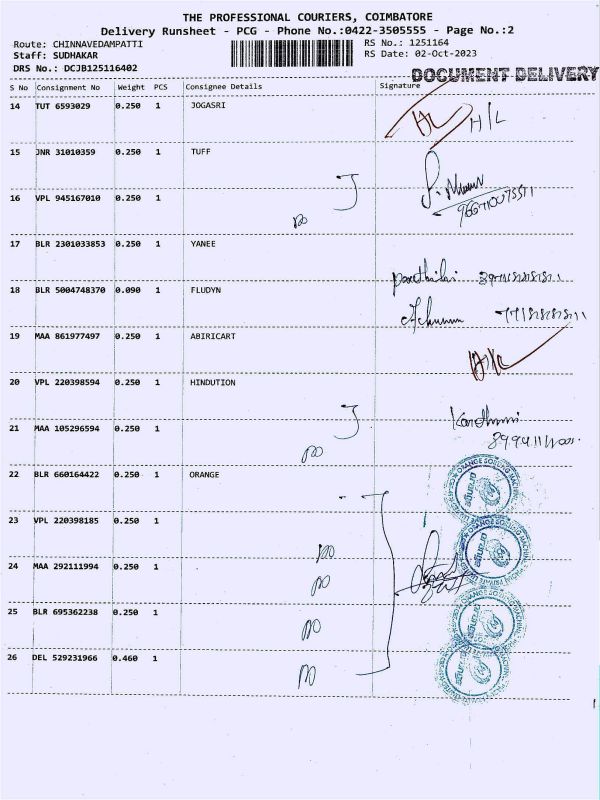 THE PROFESSIONAL COURIERS, COIMBATORE
Delivery Runsheet - PCG - Phone No.:0422-3505555 - Page No.:2
Route: CHINNAVEDAMPATTI RS No.: 1251164
Staff: SUDHAKAR RS Date: 02-Oct-2023
DRS No.: DCJB125116402
DOCUMENT DELIVERY
S No Consignment No Weight PCS Consignee Details Signature
14 TUT 6593029 0.250 1 JOGASRI H/L H/L
15 JNR 31010359 0.250 1 TUFF
16 VPL 945167010 0.250 1
17 BLR 2301033853 0.250 1 YANEE
18 BLR 5004748370 0.090 1 FLUDYN
19 MAA 861977497 0.250 1 ABIRICART H/L
20 VPL 220398594 0.250 1 HINDUTION
21 MAA 105296594 0.250 1
22 BLR 660164422 0.250 1 ORANGE
23 VPL 220398185 0.250 1
24 MAA 292111994 0.250 1
25 BLR 695362238 0.250 1
26 DEL 529231966 0.460 1